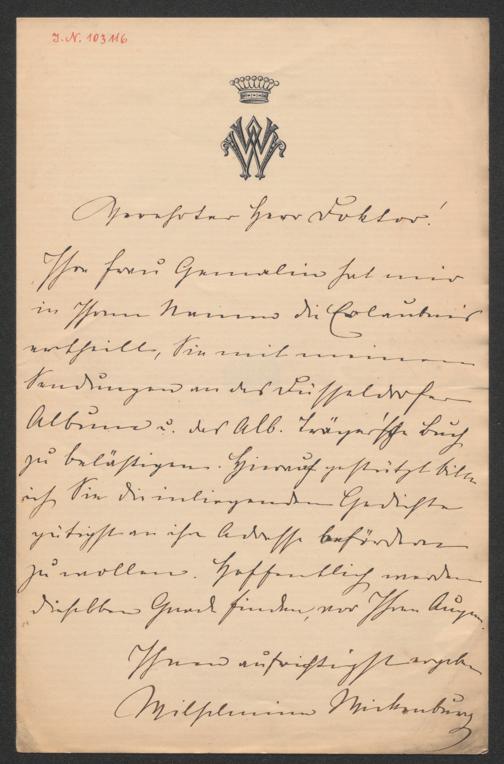 J. N. 103116
W
Verehrter Herr Doktor!
Ihre Frau Gemalin hat mir
in Ihrem Namen die Erlaubnis
ertheilt, Sie mit meinen
Sendungen an das Düsseldorfer
Album u. das Alb. Träger'sche Buch
zu belästigen. Hierauf gestützt bitte
ich Sie die inliegenden Gedichte
gütigst an ihre Adresse befördern
zu wollen. Hoffentlich werden
dieselben Gnade finden, vor Ihren Augen.
Ihnen aufrichtigst ergeben
Wilhelmine Wickenburg